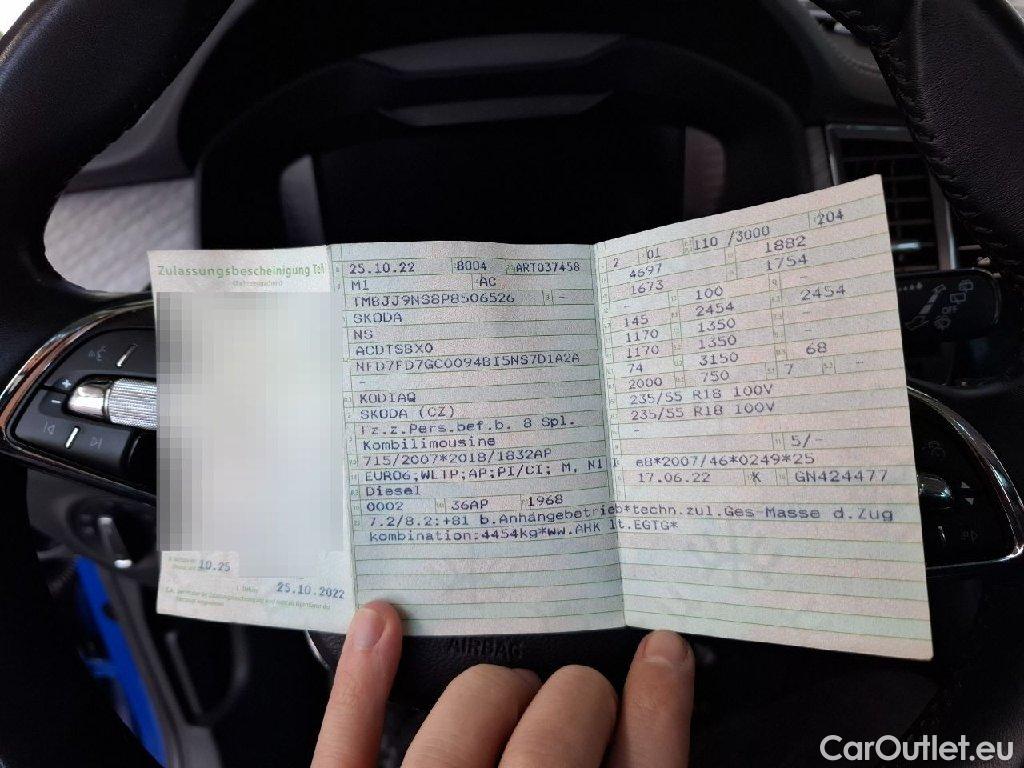 Zulassungsbescheinigung Teil
10.25
25.10.2022
25.10.22 8004 ART037458
M1 AC
TMBJJ9NS8P8506526 -
SKODA
NS
ACDTSBX0
NFD7FD7GC0094BI5NS7D1A2A
-
KODIAQ
SKODA (CZ)
Fz.z.Pers.bef.b. 8 Spl.
Kombilimousine
715/2007*2018/1832AP
EURO6;WLTP;AP;PI/CI; M, N1 I
Diesel
0002 36AP 1968
7.2/8.2:+81 b.Anhängebetrieb*techn.zul.Ges-Masse d.Zug
kombination:4454kg*ww.AHK lt.EGTG*
2 01 110 /3000 204
4697 1882
1673 1754
- 100 -
145 2454 2454
1170 1350 -
1170 1350 -
74 3150 68
2000 750 7
235/55 R18 100V
235/55 R18 100V
-
5/-
e8*2007/46*0249*25
17.06.22 K GN424477
AIRBAG
CarOutlet.eu